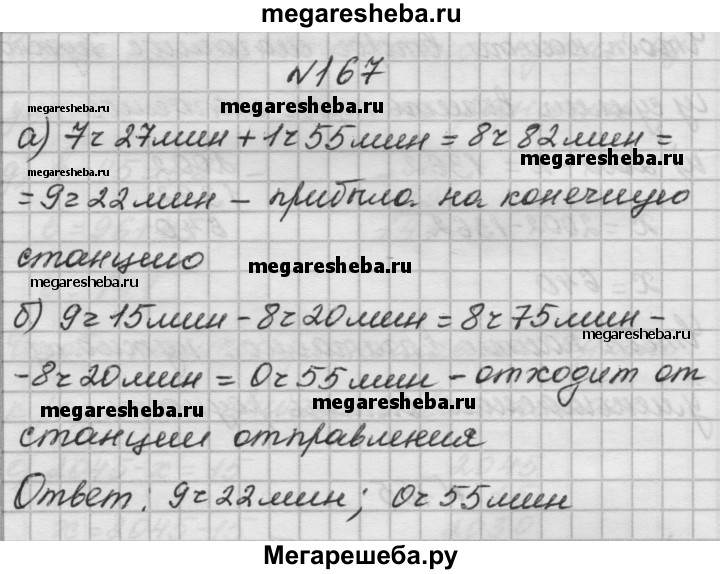 megaresheba.ru
№167
megaresheba.ru megaresheba.ru
а) 7ч 27мин + 1ч 55мин = 8ч 82мин =
megaresheba.ru
= 9ч 22мин – прибыла на конечную
станцию
megaresheba.ru megaresheba.ru
б) 9ч 15мин - 8ч 20мин = 8ч 75мин -
megaresheba.ru
- 8ч 20мин = 0ч 55мин - отходит от
megaresheba.ru megaresheba.ru
станции отправления
Ответ: 9ч 22мин; 0ч 55мин
Мегарешеба.ру